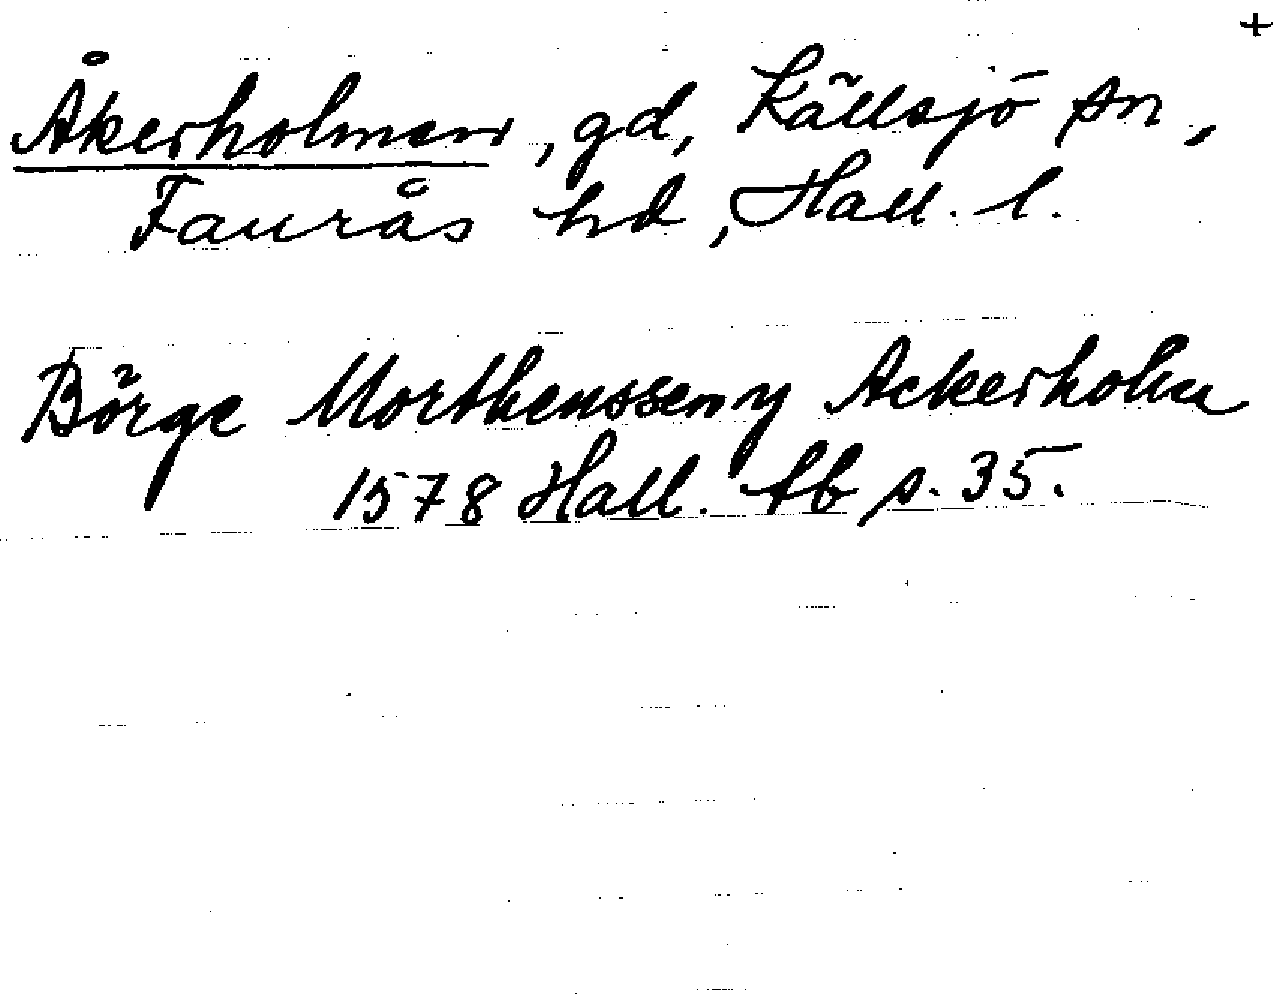 +
Åkerholmen, gd, Källsjö sn,
Faurås hd, Hall. l.
Börge Morthenssen y Ackerholm
1578 Hall. lb s. 35.